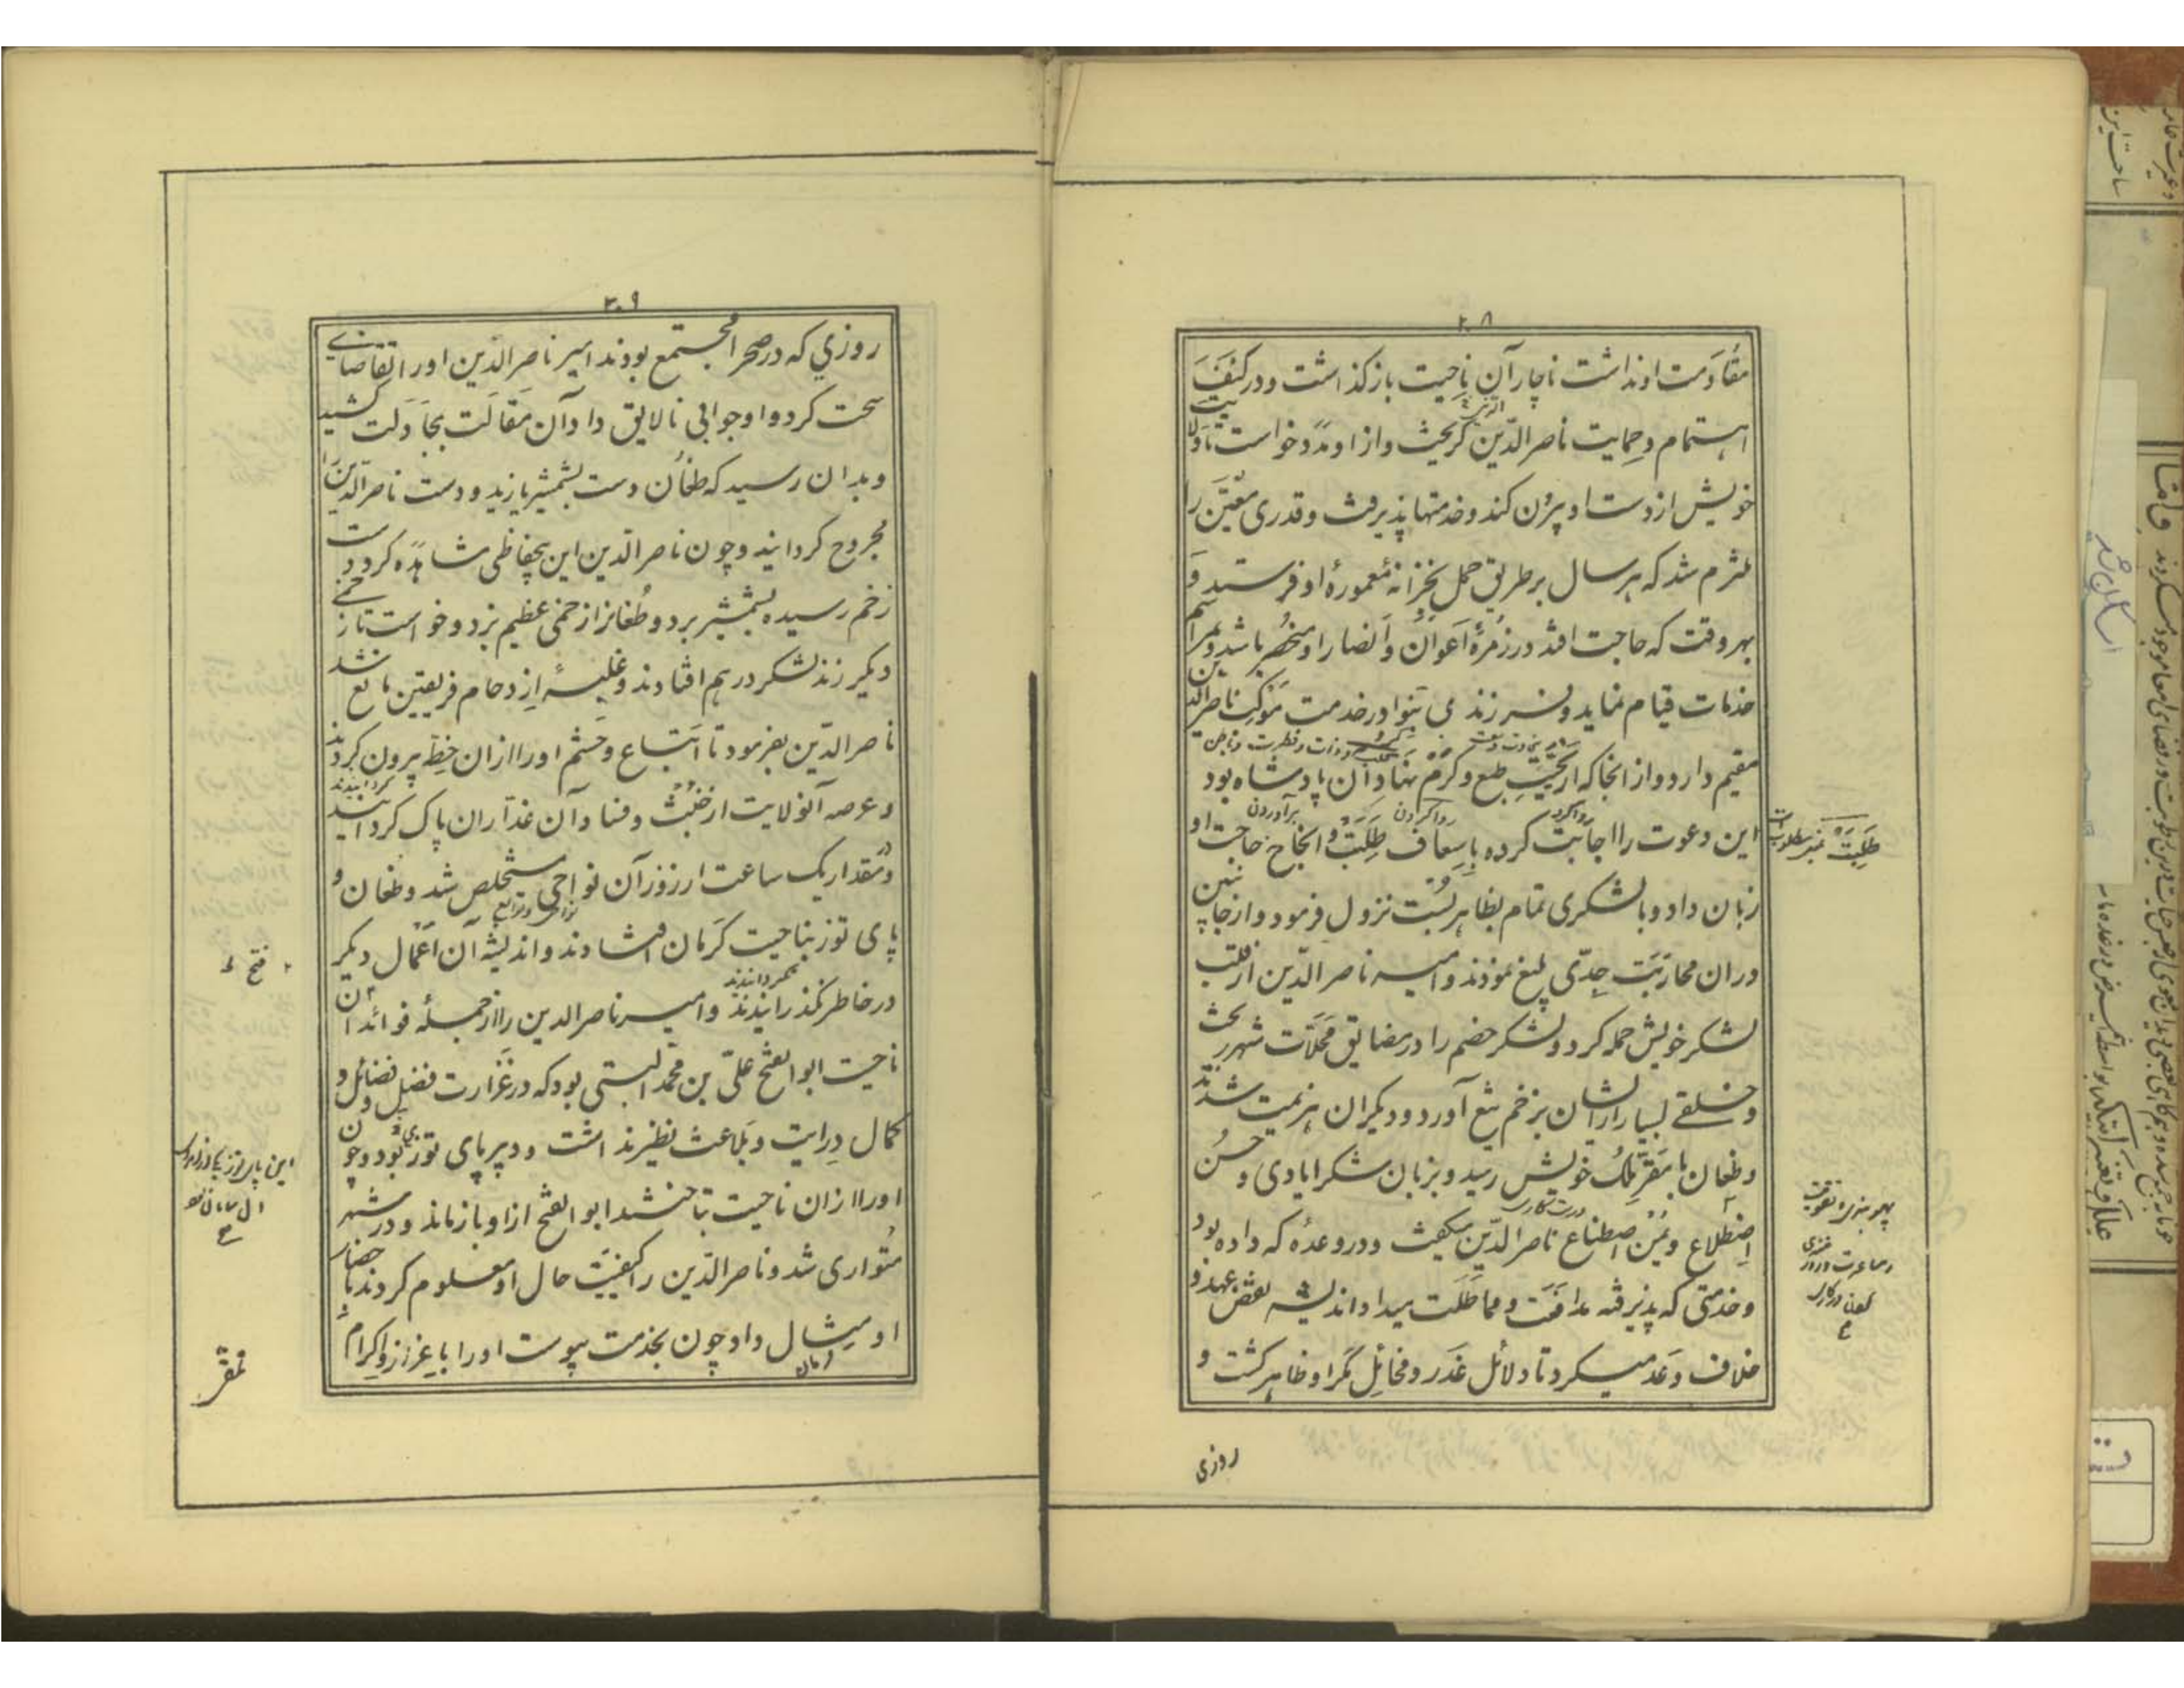 ۲۰۸
مقاومت او نداشت ناچار آن ناحیت بازگذاشت و در کنف
اهتمام و حمایت ناصرالدین گریخت و از او مدد خواست تا ولایت
خویش از دست او بیرون کند و خدمتها پذیرفت و قدری معین را
ملتزم شد که هر سال بر طریق حمل بخزانه معمورهٔ او فرستد و
بهر وقت که حاجت افتد در زمرهٔ اعوان و انصار او منحصر باشد و بمراسم
خدمات قیام نماید و فرزندی بنوا در خدمت موکب ناصرالدین
مقیم دارد و از آنجا که از نجیب طبع و کرم نهاد آن پادشاه بود
این دعوت را اجابت کرده باسعاف طلبت و انجاح حاجت او
زبان داد و با لشکری تمام بظاهر بست نزول فرمود و از جانبین
در ان محاربت جدّی بلیغ نمودند و امیر ناصرالدین از قلب
لشکر خویش حمله کرد و لشکر خصم را در مضایق محلات شهر ریخت
و خلقی بسیار از ایشان بزخم تیغ آورد و دیگران هزیمت شدند
و طغان با مقرّ ملک خویش رسید و بزبان شکر ایادی و حسن
اضطلاع و یمن اصطناع ناصرالدین میگفت و در وعده که داده بود
و خدمتی که پذیرفته مدافعت و مماطلت میداد و اندیشه نقض عهد و
خلاف وعد میکرد تا دلائل غدر و مخائل مکر او ظاهر گشت و
روزی
طلبت
رواکرد
رواکردن
برآوردن
۲۰۹
روزی که در صحرا مجتمع بودند امیر ناصرالدین او را تقاضای
سخت کرد و او جوابی نالایق داد و آن مقالت بمجادلت کشید
و بدان رسید که طغان دست بشمشیر یازید و دست ناصرالدین را
مجروح گردانید و چون ناصرالدین این بیحفاظی مشاهده کرد دست
زخم رسیده بشمشیر برد و طغانرا زخمی عظیم بزد و خواست تا زخمی
دیگر زند لشکر در هم افتادند و غلبهٔ ازدحام فریقین مانع شد
ناصرالدین بفرمود تا اتباع و حشم او را از ان خطه بیرون کردند
و عرصه آنولایت از خبث و فساد آن غدّاران پاک گردانید
و بمقدار یک ساعت از روز آن نواحی مستخلص شد و طغان و
پای توز بناحیت کرمان افتادند و اندیشه آن اعمال دیگر
در خاطر نگذرانیدند و امیر ناصرالدین را از جمله فوائد آن
ناحیت ابوالفتح علی بن محمد البستی بود که در غزارت فضل و فضائل و
کمال درایت و بلاغت نظیر نداشت و دبیر پای توز بود و چون
او را از ان ناحیت بتاختند ابوالفتح از او بازماند و در شهر
متواری شد و ناصرالدین را کیفیت حال او معلوم کردند باحضار
او مثال داد چون بخدمت پیوست او را باعزاز و اکرام
فتح